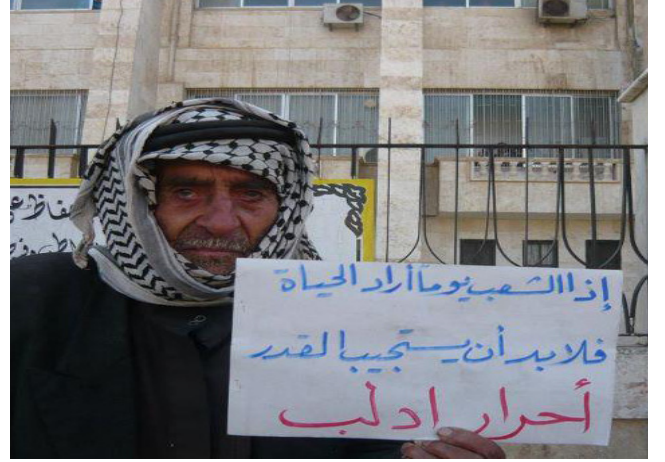 إذا الشعب يوماً أراد الحياة
فلا بد أن يستجيب القدر
أحرار ادلب